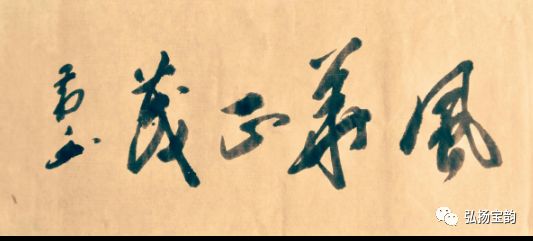 風華正茂
弘扬宝韵